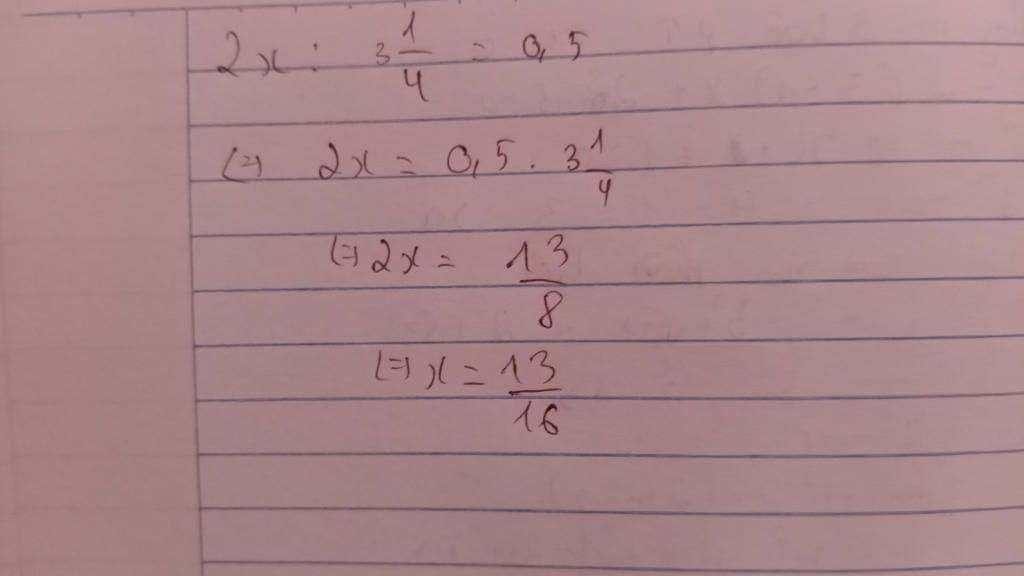 2x : 3 1/4 = 0,5
⇔ 2x = 0,5 . 3 1/4
⇔ 2x = 13/8
⇔ x = 13/16